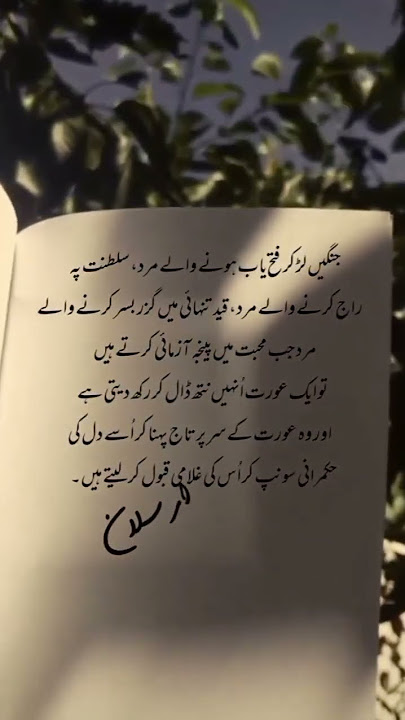 جنگیں لڑ کر فتح یاب ہونے والے مرد، سلطنت پہ
راج کرنے والے مرد، قید تنہائی میں گزر بسر کرنے والے
مرد جب محبت میں پنجہ آزمائی کرتے ہیں
تو ایک عورت اُنہیں نتھ ڈال کر رکھ دیتی ہے
اور وہ عورت کے سر پر تاج پہنا کر اُسے دل کی
حکمرانی سونپ کر اُس کی غلامی قبول کر لیتے ہیں ۔